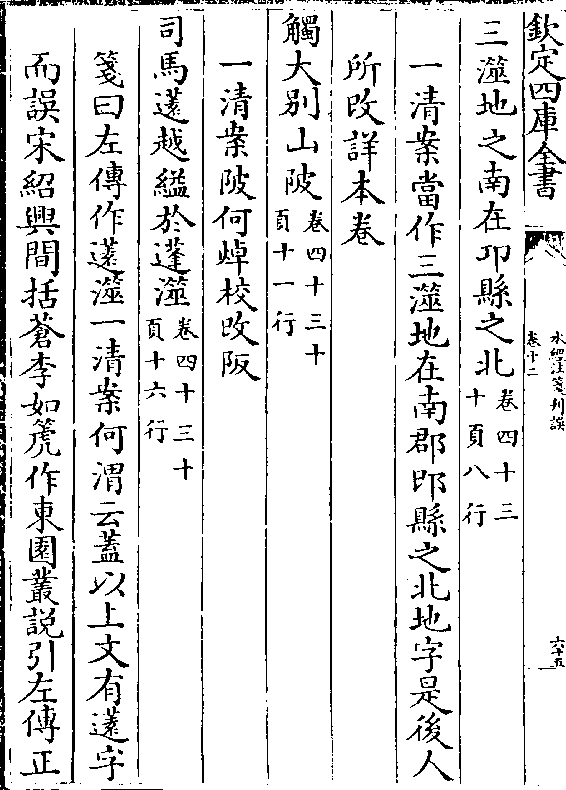 欽定四庫全書
水經注箋刋誤
卷十二
六十五
三澨地之南在卭縣之北卷四十三
十頁八行
一清案當作三澨地在南郡邔縣之北地字是後人
所改詳本卷
觸大别山陂卷四十三十
頁十一行
一清案陂何焯校改阪
司馬薳越縊於蓬澨卷四十三十
頁十六行
箋曰左傳作薳澨一清案何渭云蓋以上文有薳字
而誤宋紹興間括蒼李如箎作東園叢説引左傳正